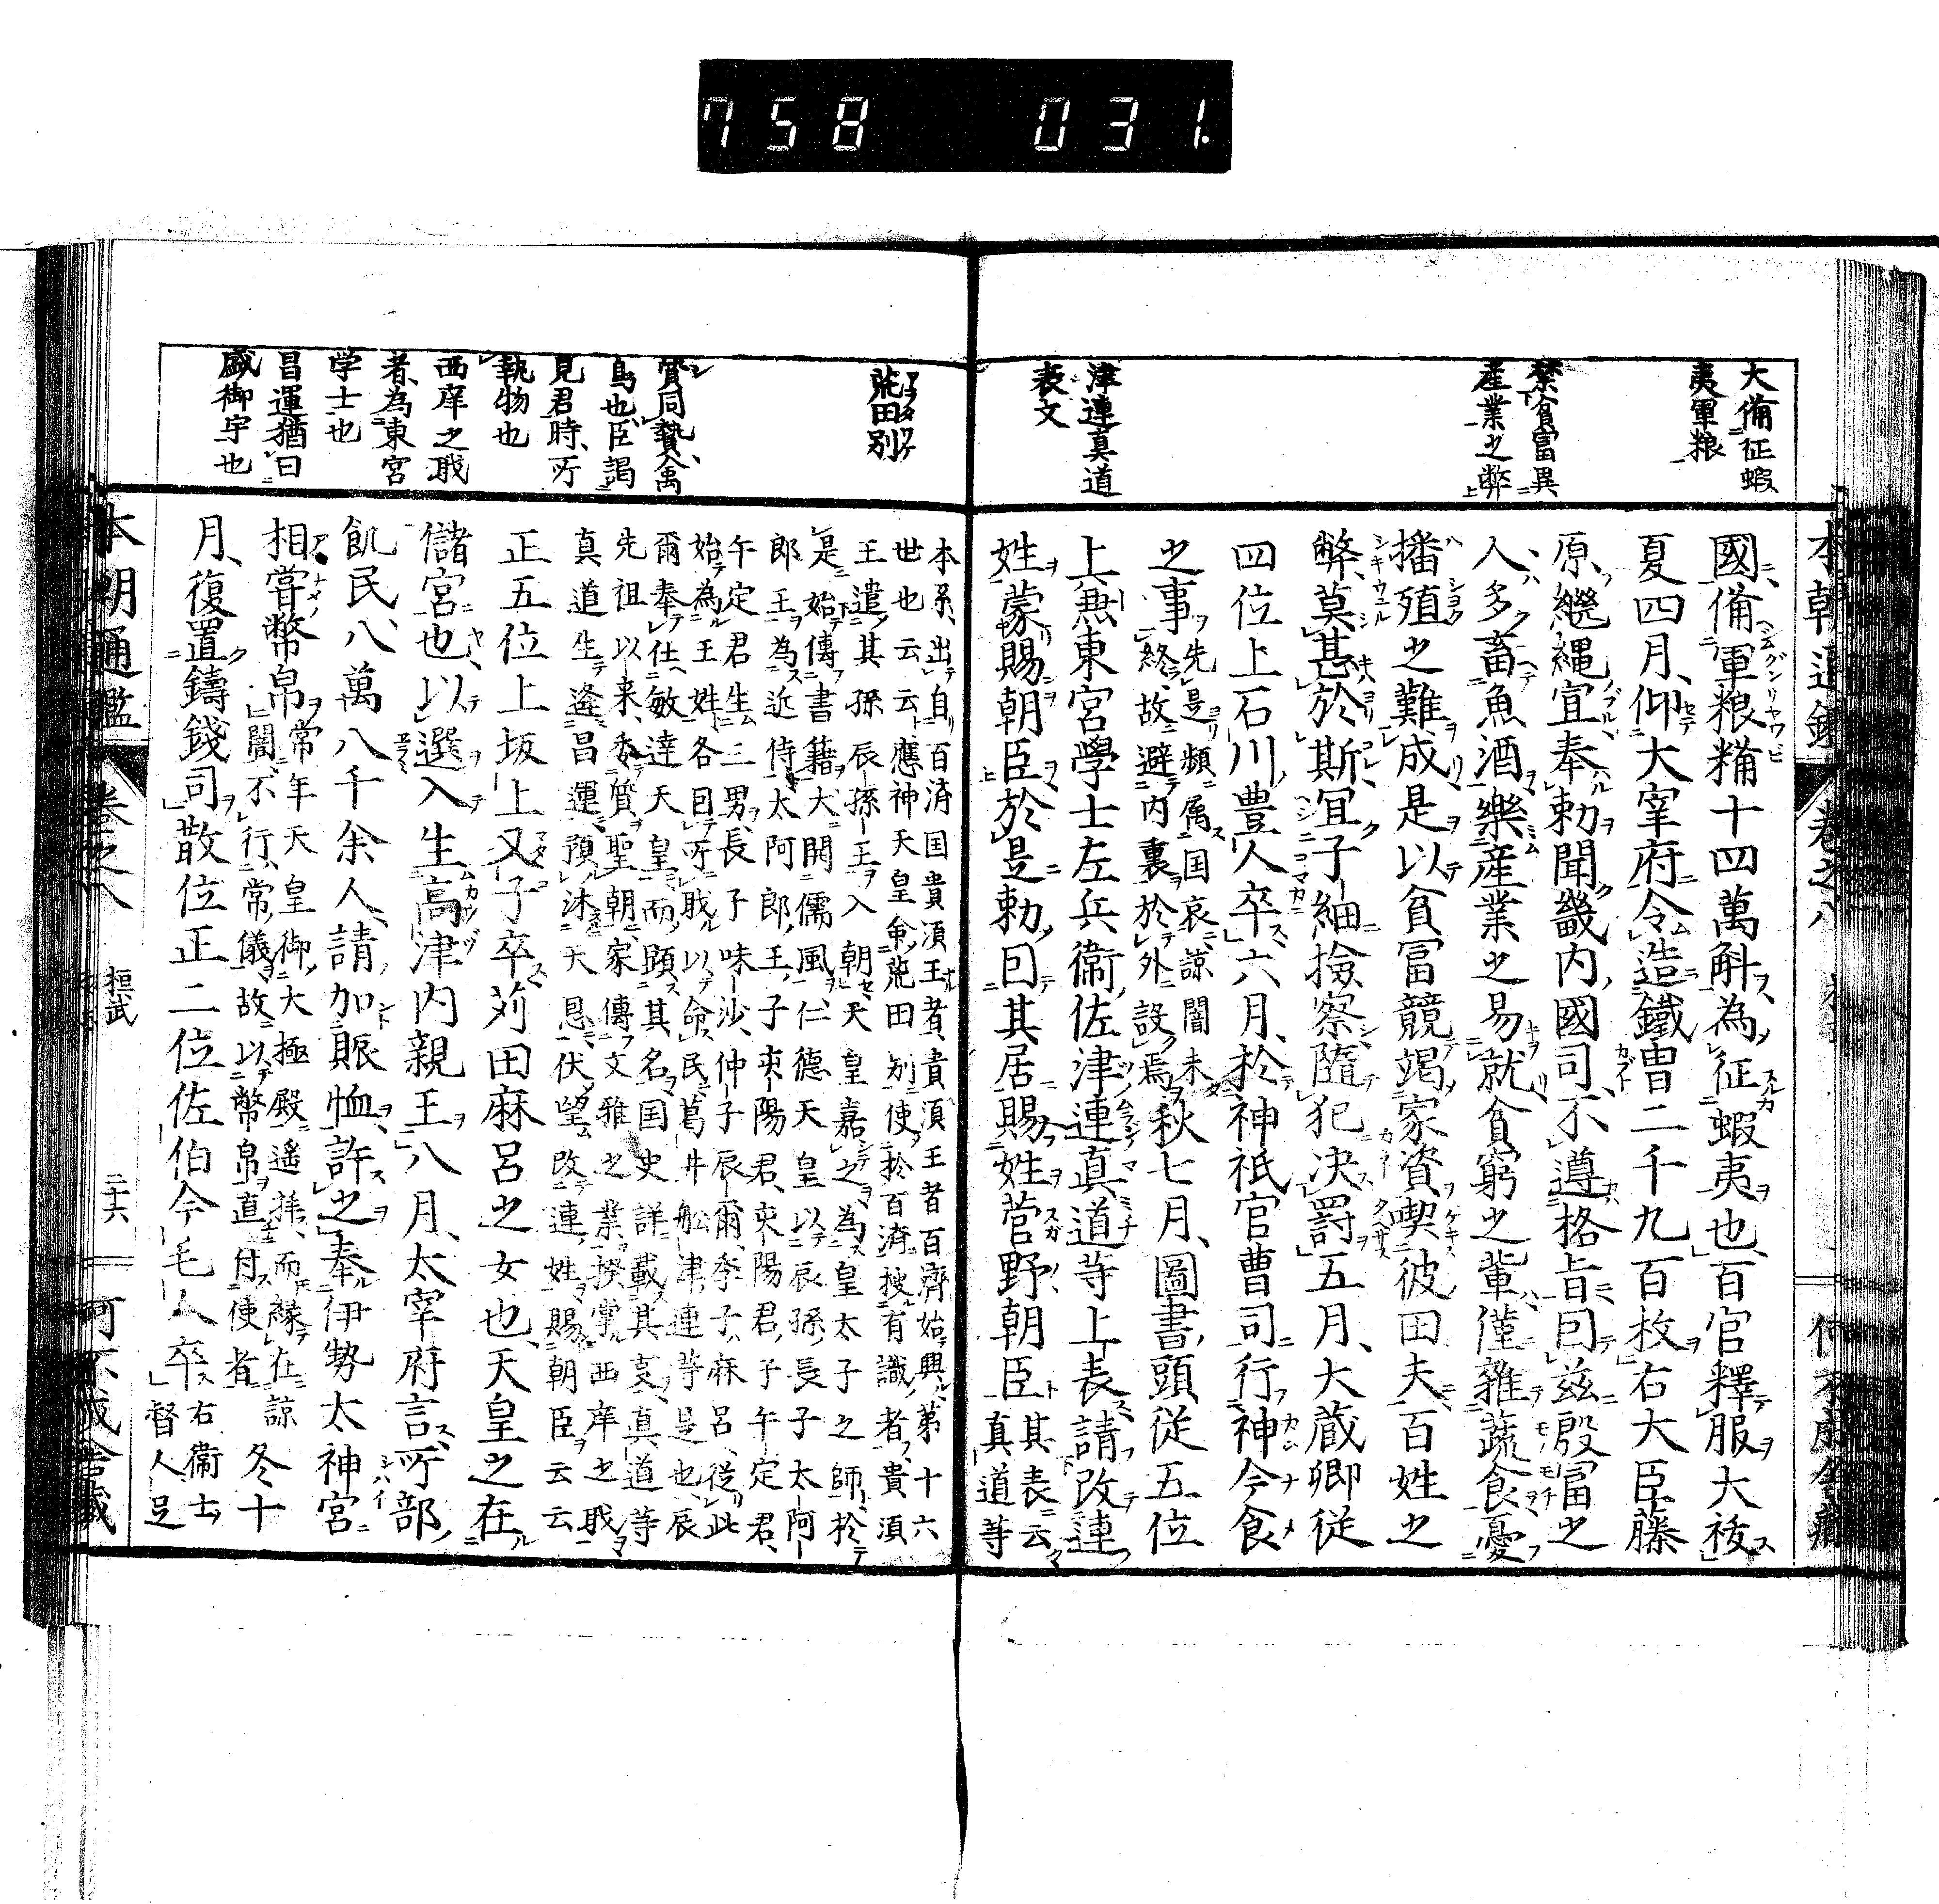 758 031.
大備征蝦
夷軍粮
禁貧富異
産業之弊
津連真道
表文
國備軍粮糒十四萬斛為征蝦夷也百官釋服大祓
夏四月仰大宰府令造鐵冑二千九百枚右大臣藤
原繼縄宣奉勅聞畿内國司不遵格旨曰茲殷富之
人多畜魚酒樂産業之易就貧窮之輩僅雜蔬食憂
播殖之難成是以貧冨競竭家資喫彼田夫百姓之
弊莫甚於斯宜子細撿察隨犯決罸五月大蔵卿従
四位上石川豊人卒六月於神祇官曹司行神今食
之事先是頻属国哀諒闇未
終故避内裏於外設焉秋七月圖書頭従五位
上兼東宮學士左兵衛佐津連真道等上表請改連
姓蒙賜朝臣於是勅曰其居賜姓菅野朝臣其表云
真道等
荒田別
質同贄禽
鳥也臣謁
見君時所
執物也
西庠之職
者為東宮
学士也
昌運猶曰
盛御宇也
本系出自百済国貴湏王者貴湏王者百齊始興第十六
世也云云應神天皇命荒田別使於百済捜有識者貴湏
王遣其孫辰孫王入朝天皇嘉之為皇太子之師於
是始傳書籍大闡儒風仁德天皇以辰孫長子太阿
郎王為近侍太阿郎王子亥陽君亥陽君子午定君
午定君生三男長子味沙仲子辰爾季子麻呂従此
始為王姓各因所職以命民葛井舩津連等是也辰
爾奉仕敏達天皇而顕其名国史詳載其支真道等
先祖以来委質聖朝家傳文雅之業揆掌西庠之職
真道生逢昌運預沐天恩伏望改連姓賜朝臣云云
正五位上坂上又子卒苅田麻呂之女也天皇之在
儲宮也以選入生高津内親王八月太宰府言所部
飢民八萬八千余人請加賑恤許之奉伊勢太神宮
相嘗幣帛常年天皇御大極殿遙拝而縁在諒
闇不行常儀故以幣帛直付使者冬十
月復置鑄錢司散位正二位佐伯今毛人卒右衞士
督人足
本朝通鑑
巻之八
桓武
二十六